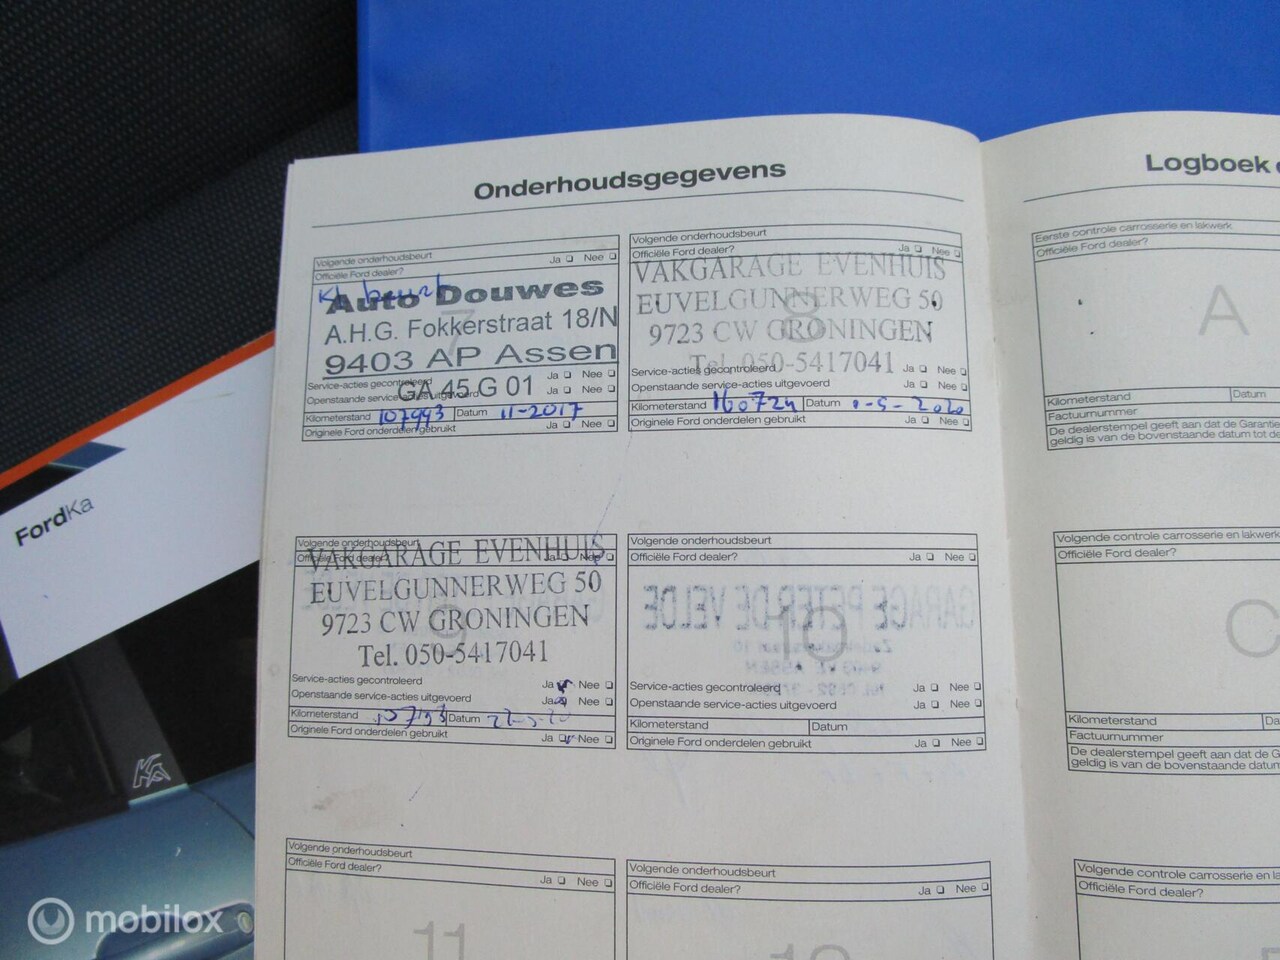 Onderhoudsgegevens
Volgende onderhoudsbeurt
Officiële Ford dealer?
Ja Nee
Kl beurt
Auto Douwes
7
A.H.G. Fokkerstraat 18/N
9403 AP Assen
Service-acties gecontroleerd Ja Nee
GA 45 G 01
Openstaande service-acties uitgevoerd Ja Nee
Kilometerstand 107993 Datum 11-2017
Originele Ford onderdelen gebruikt Ja Nee
Volgende onderhoudsbeurt
Officiële Ford dealer? Ja Nee
VAKGARAGE EVENHUIS
EUVELGUNNERWEG 50
8
9723 CW GRONINGEN
Tel. 050-5417041
Service-acties gecontroleerd Ja Nee
Openstaande service-acties uitgevoerd Ja Nee
Kilometerstand 160724 Datum 1-5-2020
Originele Ford onderdelen gebruikt Ja Nee
Volgende onderhoudsbeurt
Officiële Ford dealer? Ja Nee
VAKGARAGE EVENHUIS
EUVELGUNNERWEG 50
9
9723 CW GRONINGEN
Tel. 050-5417041
Service-acties gecontroleerd Ja Nee
Openstaande service-acties uitgevoerd Ja Nee
Kilometerstand Datum
Originele Ford onderdelen gebruikt Ja Nee
Volgende onderhoudsbeurt
Officiële Ford dealer? Ja Nee
GARAGE PETER DE VELDE
10
Service-acties gecontroleerd Ja Nee
Openstaande service-acties uitgevoerd Ja Nee
Kilometerstand Datum
Originele Ford onderdelen gebruikt Ja Nee
Volgende onderhoudsbeurt
Officiële Ford dealer?
Ja Nee
11
Volgende onderhoudsbeurt
Officiële Ford dealer? Ja Nee
Logboek
Eerste controle carrosserie en lakwerk
Officiële Ford dealer?
A
Kilometerstand Datum
Factuurnummer
De dealerstempel geeft aan dat de Garantie
geldig is van de bovenstaande datum tot de
Volgende controle carrosserie en lakwerk
Officiële Ford dealer?
C
Kilometerstand
Factuurnummer
De dealerstempel geeft aan dat de
geldig is van de bovenstaande datum
Volgende controle carrosserie en
Officiële Ford dealer?
FordKa
Ka
mobilox